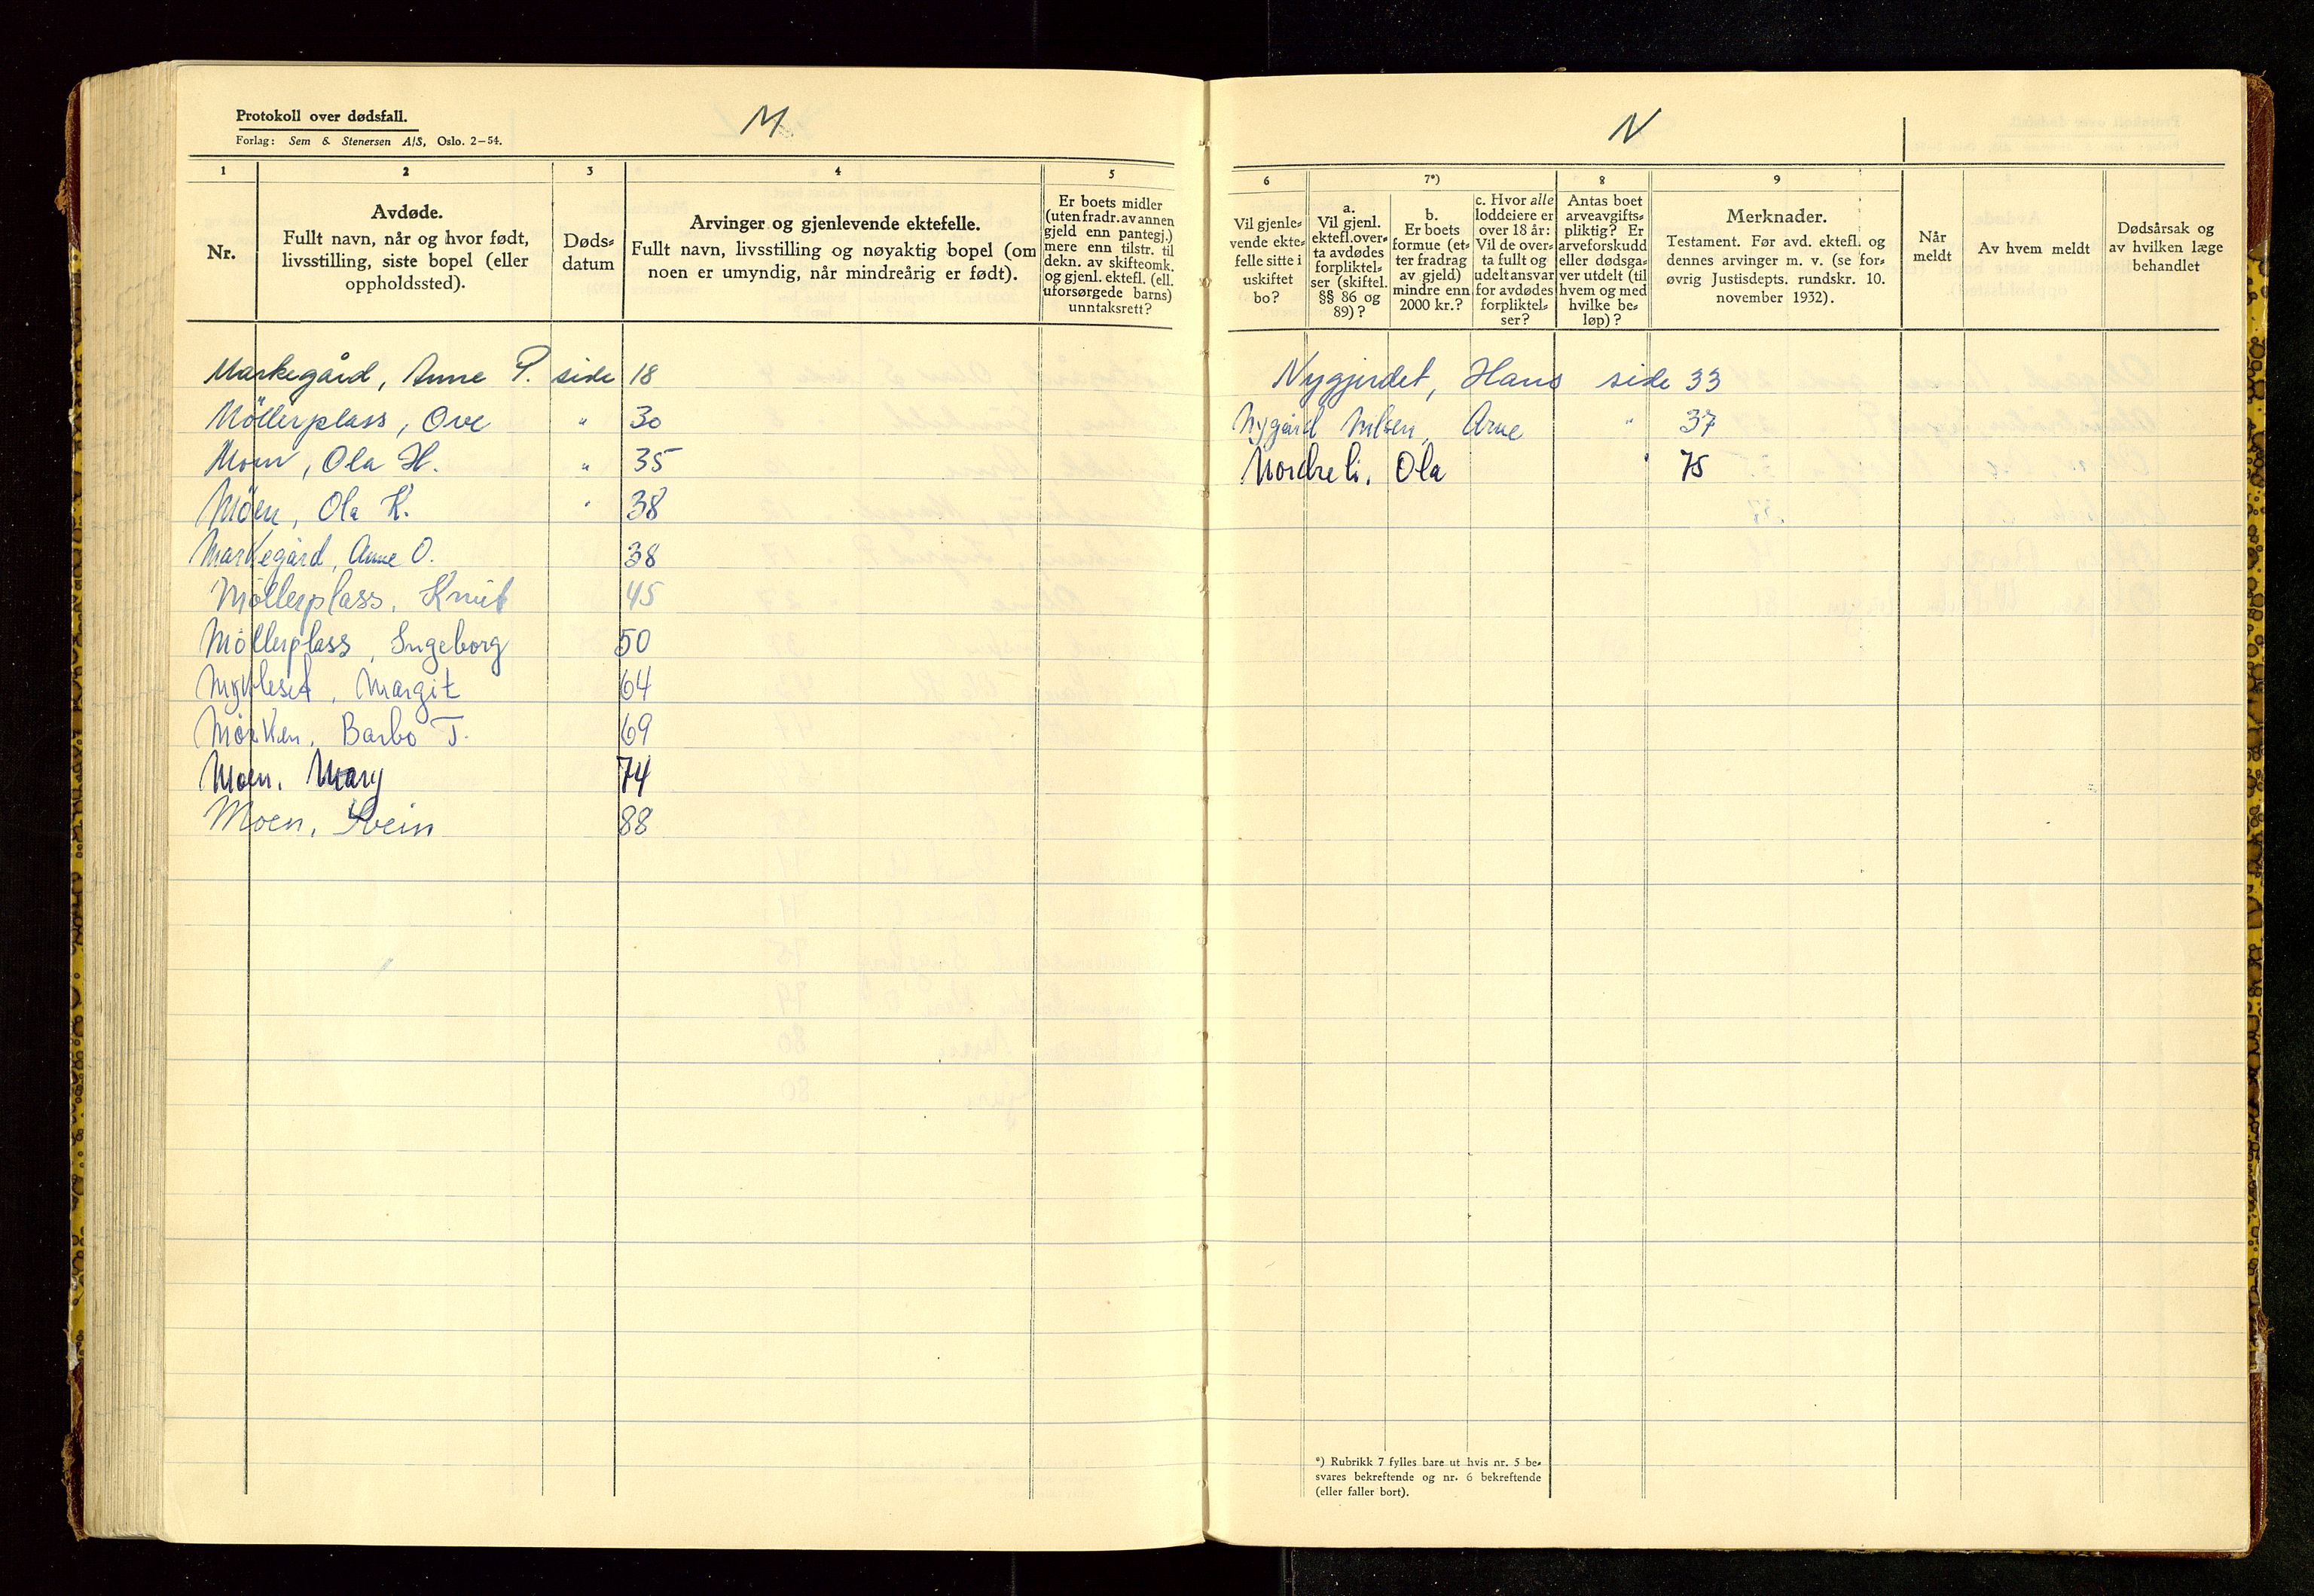 Protokoll over dødsfall.
Forlag: Sem & Stenersen A/S, Oslo. 2–54.
M
1
2
3
4
5
Nr.
Avdøde.
Fullt navn, når og hvor født,
livsstilling, siste bopel (eller
oppholdssted).
Døds=
datum
Arvinger og gjenlevende ektefelle.
Fullt navn, livsstilling og nøyaktig bopel (om
noen er umyndig, når mindreårig er født).
Er boets midler
(uten fradr. av annen
gjeld enn pantegj.)
mere enn tilstr. til
dekn. av skifteomk.
og gjenl. ektefl. (ell.
uforsørgede barns)
unntaksrett?
Markegård, Anne P. side 18
Möllerplass, Ove " 30
Moen, Ola H. " 35
Möen, Ola K. " 38
Markegård, Anne O. 38
Møllerplass, Knut 45
Möllerplass, Ingeborg 50
Margit 64
Mørken, Barbo T. 69
Moen, Mary 74
Moen, Svein 88
N
6
7*)
8
9
Vil gjenle=
vende ekte=
felle sitte i
uskiftet
bo?
a.
Vil gjenl.
ektefl.over=
ta avdødes
forpliktel=
ser (skiftel.
§§ 86 og
89)?
b.
Er boets
formue (et=
ter fradrag
av gjeld)
mindre enn
2000 kr.?
c. Hvor alle
loddeiere er
over 18 år:
Vil de over=
ta fullt og
udelt ansvar
for avdødes
forpliktel=
ser?
Antas boet
arveavgifts=
pliktig? Er
arveforskudd
eller dødsga=
ver utdelt (til
hvem og med
hvilke be=
løp)?
Merknader.
Testament. Før avd. ektefl. og
dennes arvinger m. v. (se for=
øvrig Justisdepts. rundskr. 10.
november 1932).
Når
meldt
Av hvem meldt
Dødsårsak og
av hvilken læge
behandlet
Nygjerdet, Hans side 33
Nygård Nilsen, Arne " 37
Nordreli, Ola " 75
*) Rubrikk 7 fylles bare ut hvis nr. 5 be=
svares bekreftende og nr. 6 bekreftende
(eller faller bort).